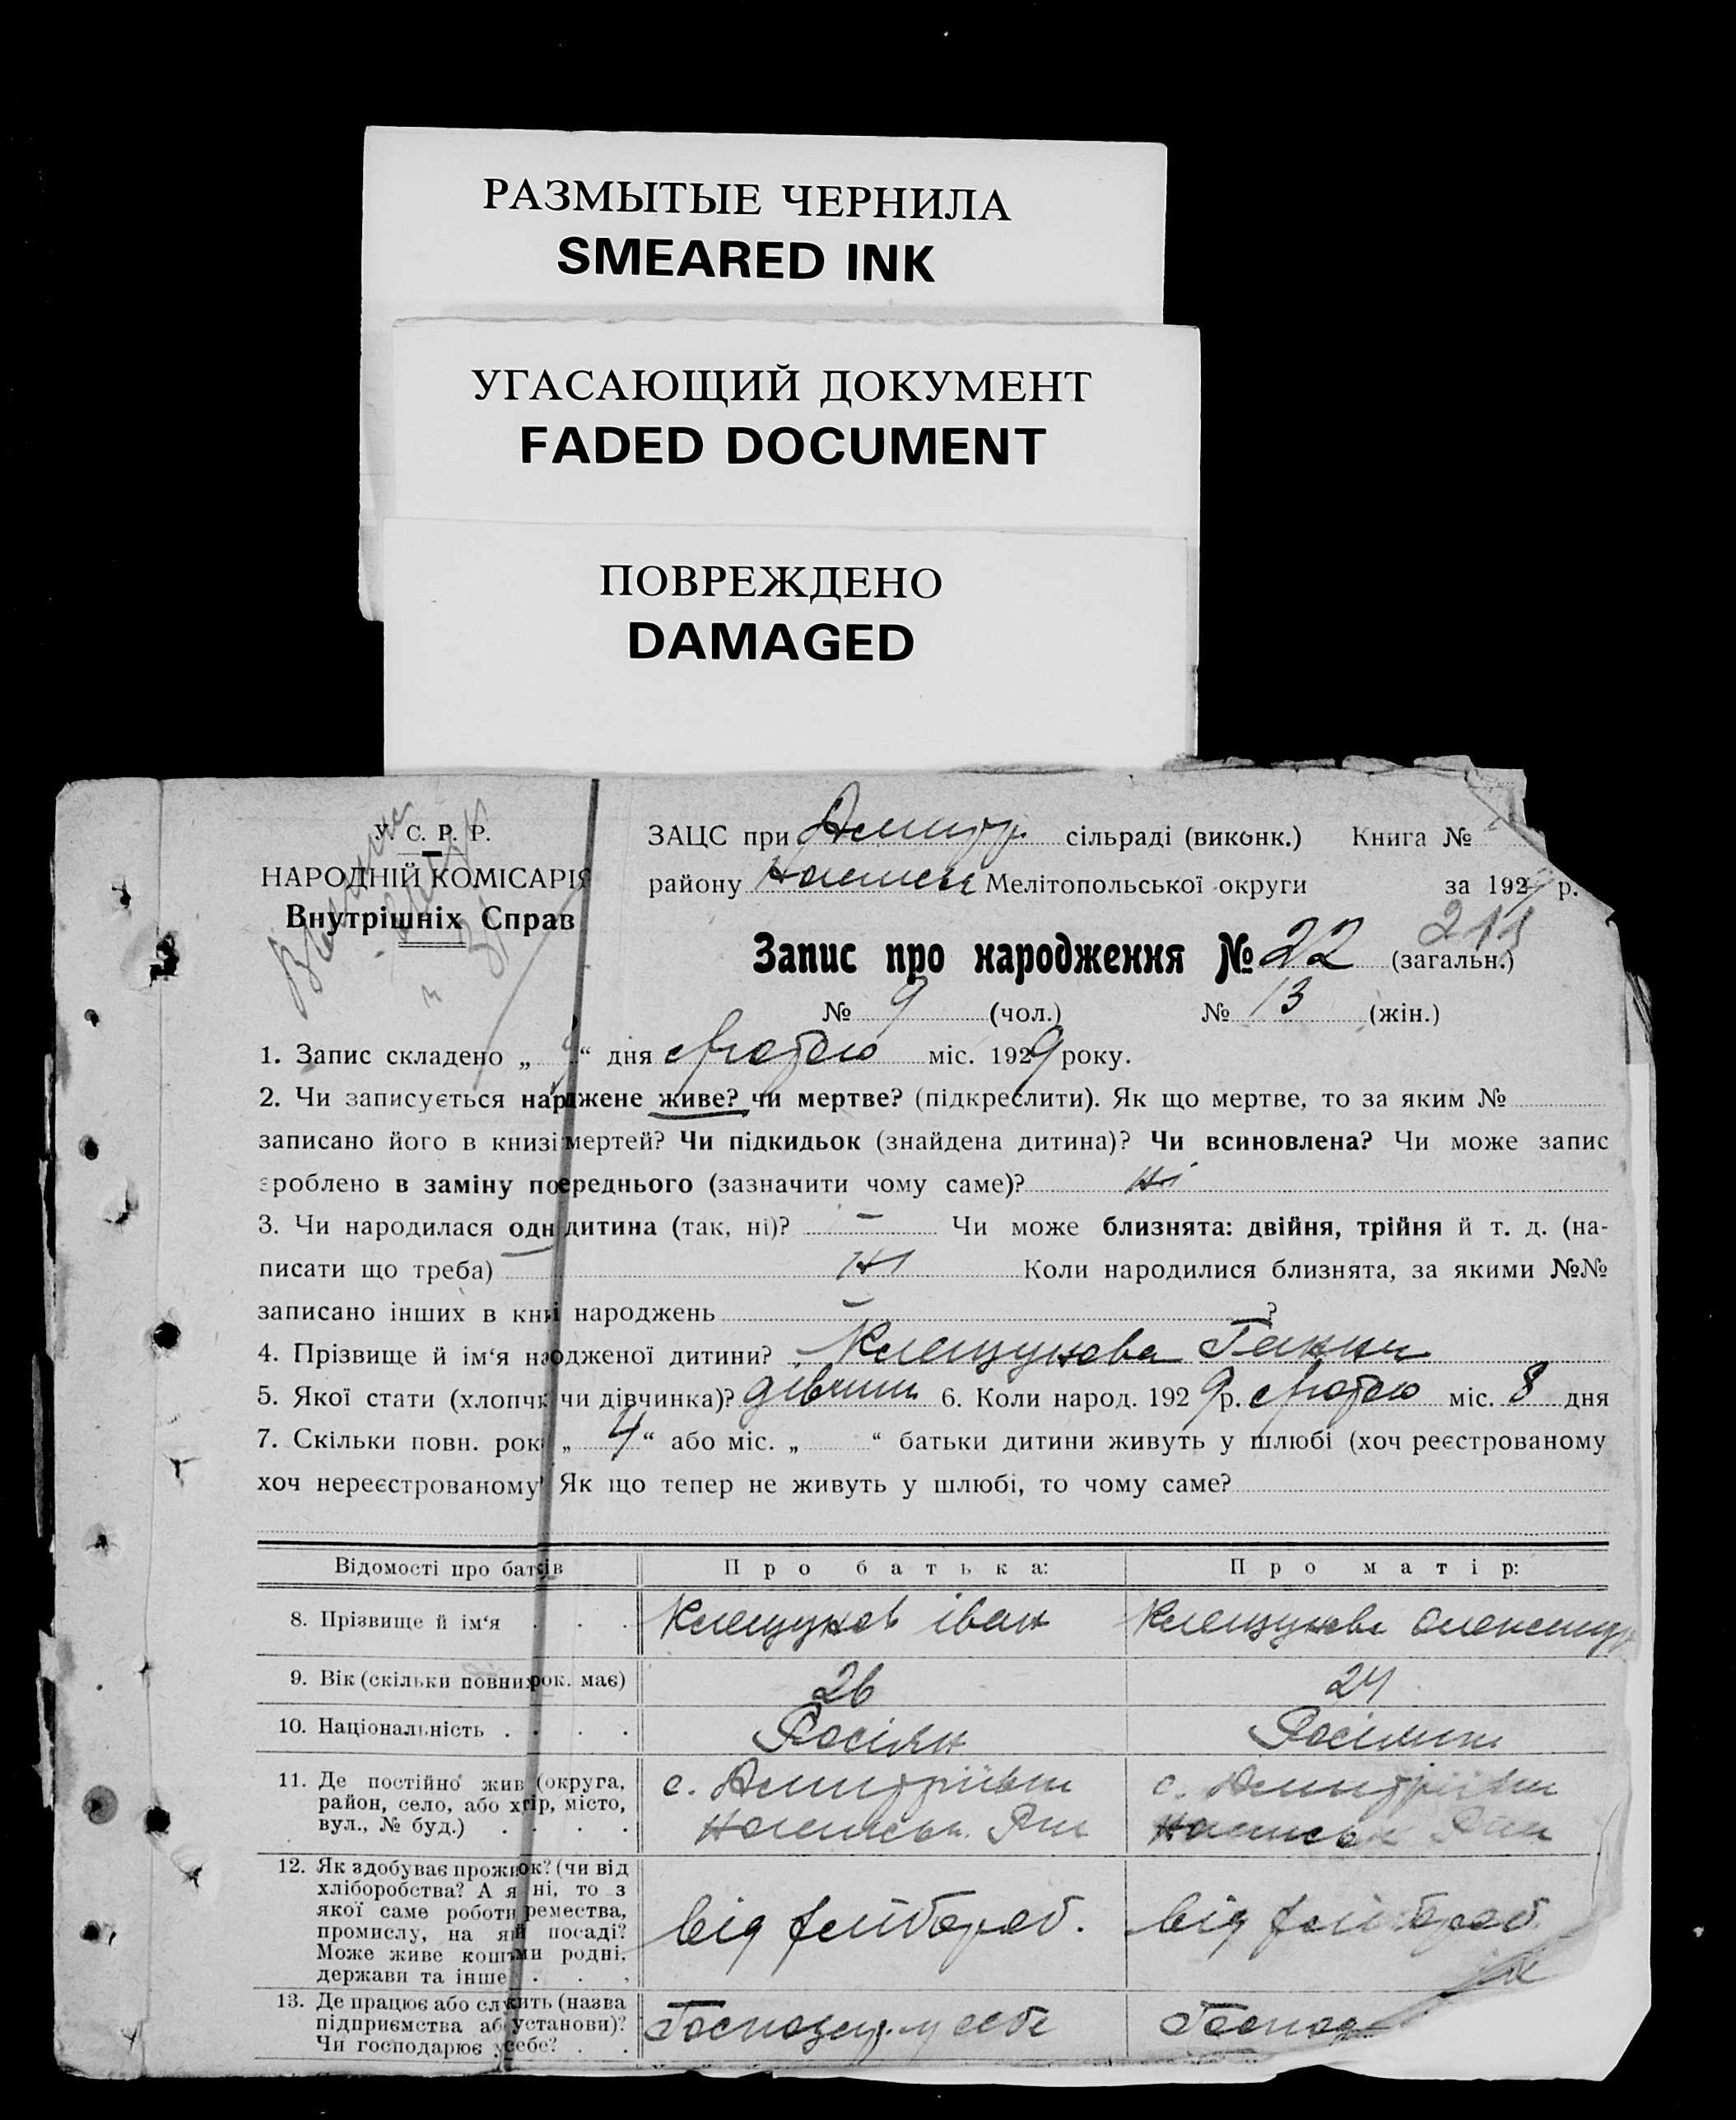 РАЗМЫТЫЕ ЧЕРНИЛА
SMEARED INK
УГАСАЮЩИЙ ДОКУМЕНТ
FADED DOCUMENT
ПОВРЕЖДЕНО
DAMAGED
У. С. Р. Р.
НАРОДНІЙ КОМІСАРІЯ
Внутрішніх Справ
ЗАЦС при сільраді (виконк.) Книга №
району Мелітопольської округи за 192 р.
211
Запис про народження № 22 (загальн.)
№ 9 (чол.) № 13 (жін.)
1. Запис складено „ 9 “ дня лютого міс. 1929 року.
2. Чи записується нарджене живе? чи мертве? (підкреслити). Як що мертве, то за яким №
записано його в книзі мертей? Чи підкидьок (знайдена дитина)? Чи всиновлена? Чи може запис
зроблено в заміну попереднього (зазначити чому саме)? Ні
3. Чи народилася одн дитина (так, ні)? – Чи може близнята: двійня, трійня й т. д. (на-
писати що треба) Ні Коли народилися близнята, за якими №№
записано інших в кни народжень – ?
4. Прізвище й ім‘я народженої дитини? Клещунова Ганна
5. Якої стати (хлопчи чи дівчинка)? дівчин 6. Коли народ. 1929 р. лютого міс. 8 дня
7. Скільки повн. рок „ 4 “ або міс. „ “ батьки дитини живуть у шлюбі (хоч реєстрованому
хоч нереєстрованому Як що тепер не живуть у шлюбі, то чому саме?
Відомості про батьків Про батька: Про матір:
8. Прізвище й ім‘я . . . Клещунов іван Клещунова Олександр
9. Вік (скільки повних рок. має) 26 24
10. Національність . . . . Росіян Росіянин
11. Де постійно жив (округа,
район, село, або хутір, місто,
вул., № буд.) . . . .
с. Дмитріївка с. Дмитріївка
12. Як здобуває прожиток? (чи від
хліборобства? А я ні, то з
якої саме роботи ремества,
промислу, на які посаді?
Може живе коштами родні,
держави та інше . . .
від хлібороб. від хлібороб
13. Де працює або служить (назва
підприємства аб установи)?
Чи господарює у себе? . .
Господар. у себе Господ